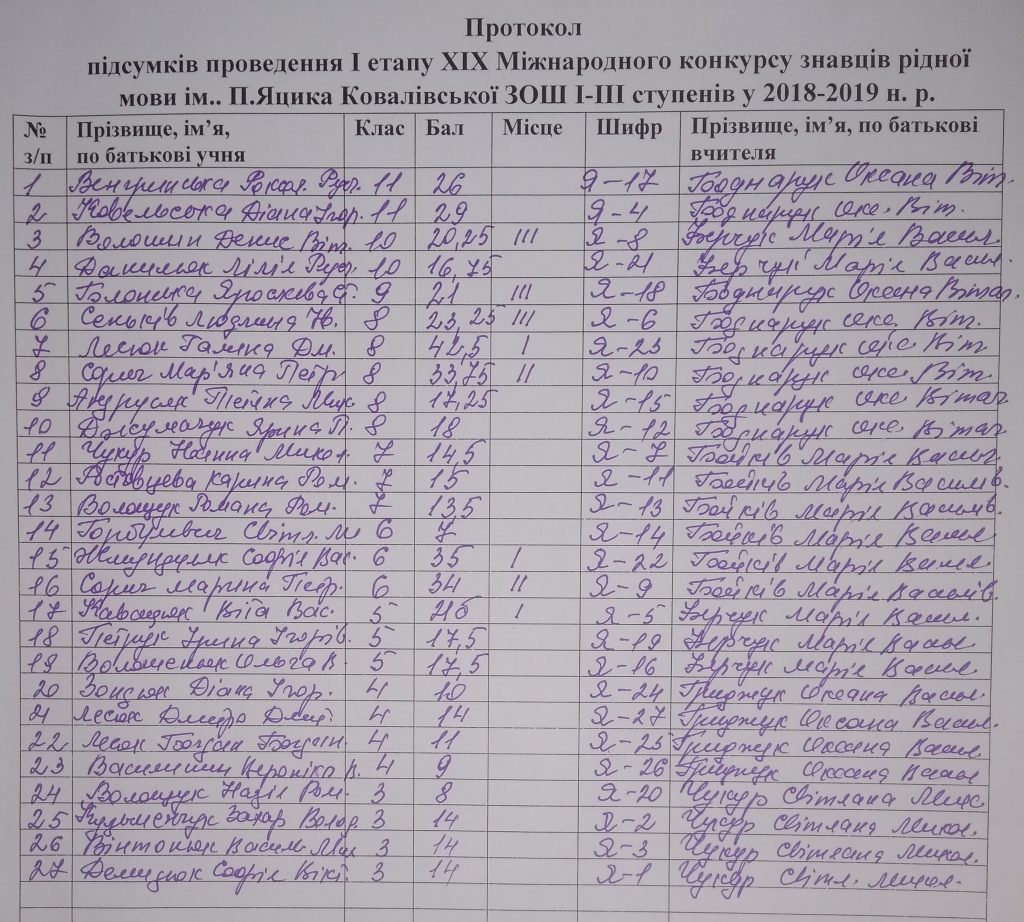 Протокол
підсумків проведення І етапу ХІХ Міжнародного конкурсу знавців рідної
мови ім.. П.Яцика Ковалівської ЗОШ І-ІІІ ступенів у 2018-2019 н. р.
№ з/п Прізвище, ім’я, по батькові учня Клас Бал Місце Шифр Прізвище, ім’я, по батькові вчителя
1 11 26 Я-17 Боднарук Оксана Віт.
2 Ковельська Діана Ігор. 11 29 Я-4 Боднарук Окс. Віт.
3 Волошин Денис Віт. 10 20,25 ІІІ Я-8 Берчук Марія Васил.
4 Данилюк Лілія 10 16,75 Я-21 Берчук Марія Васил.
5 9 21 ІІІ Я-18 Боднарук Оксана Вітал.
6 Сеньків Людмила 8 23,25 ІІІ Я-6 Боднарук Окс. Віт.
7 Лесюк Галина Дм. 8 42,5 І Я-23 Боднарук Окс. Віт.
8 Мар'яна Петр 8 33,75 ІІ Я-10 Боднарук Окс. Віт.
9 Андрусяк 8 17,25 Я-15 Боднарук Окс. Вітал.
10 Джумачук Ярина П. 8 18 Я-12 Боднарук Окс. Вітал.
11 Чукур Микол. 7 14,5 Я-7 Бойків Марія Васил.
12 Ростовцева Карина Ром. 7 15 Я-11 Бойків Марія Василів.
13 Волощук Романа Ром. 7 13,5 Я-13 Бойків Марія Василів.
14 Світл. 6 7 Я-14 Бойків Марія Васил.
15 Софія Вас. 6 35 І Я-22 Бойків Марія Васил.
16 Марина Петр. 6 34 ІІ Я-9 Бойків Марія Василів.
17 Віта Вас. 5 І Я-5 Берчук Марія Васил.
18 Петрук Ірина Ігорів. 5 17,5 Я-19 Берчук Марія Васил.
19 Ольга В. 5 17,5 Я-16 Берчук Марія Васил.
20 Діана Ігор. 4 10 Я-24 Гриджук Оксана Васил.
21 Лесюк Дмитро Дмит. 4 14 Я-27 Гриджук Оксана Васил.
22 Лесюк Богдан Богдан. 4 11 Я-25 Гриджук Оксана Васил.
23 Василишин Вероніка 4 9 Я-26 Гриджук Оксана Васил
24 Волощук Надія Ром. 3 8 Я-20 Чукур Світлана Микол
25 Кузьменчук Захар Волод. 3 14 Я-2 Чукур Світлана Микол.
26 Вінтоняк Василь Мик 3 14 Я-3 Чукур Світлана Микол.
27 Демидюк Софія Вікт. 3 14 Я-1 Чукур Світл. Микол.